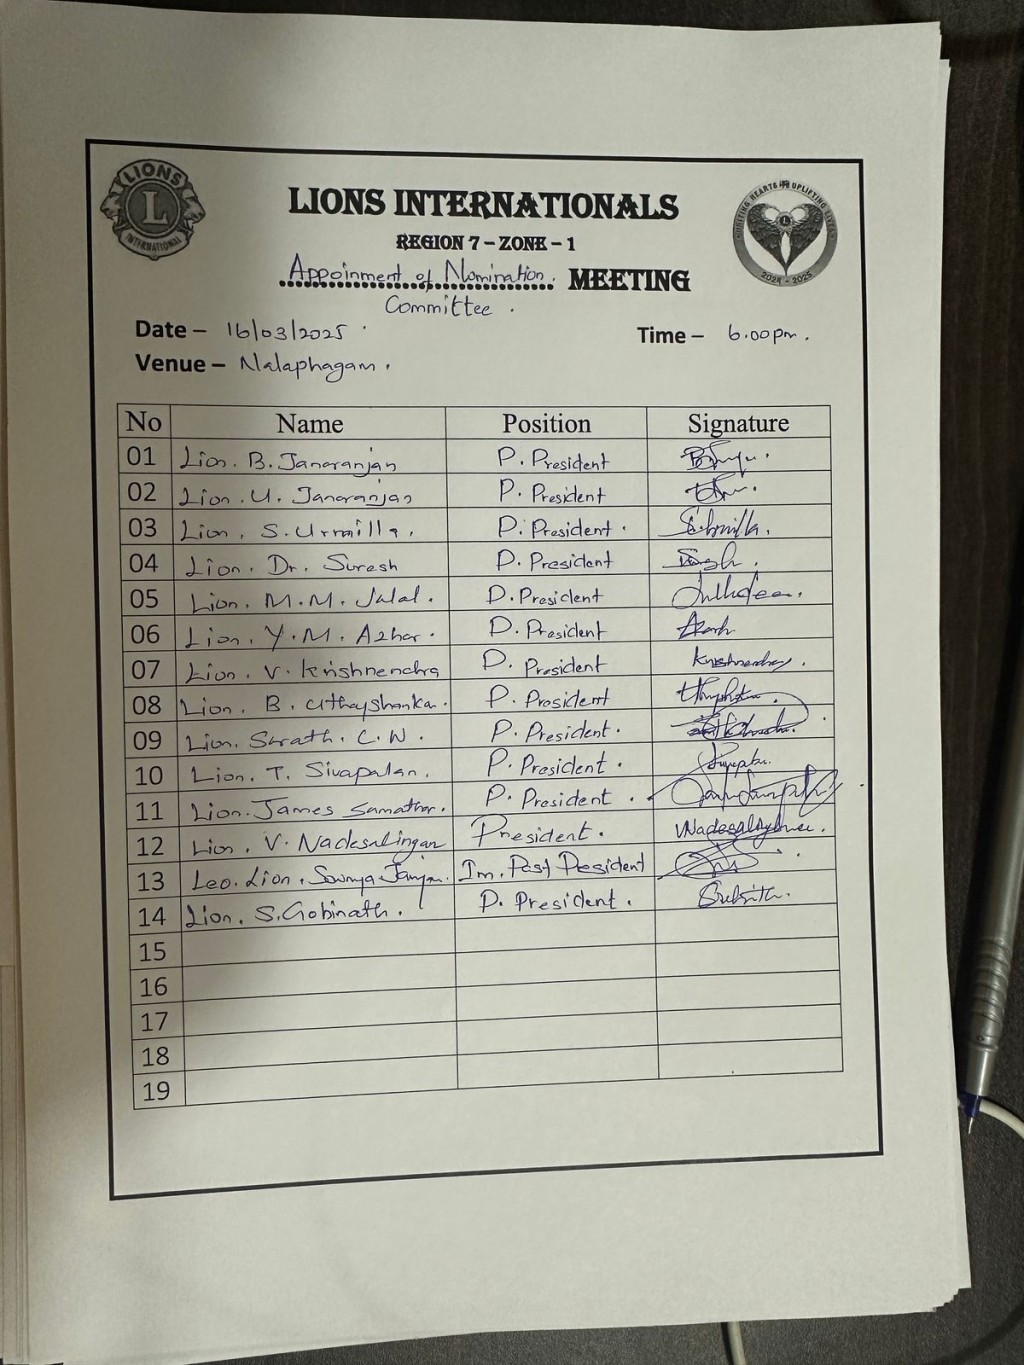 LIONS
L
INTERNATIONAL
LIONS INTERNATIONALS
UNITING HEARTS UPLIFTING LIVES
2024 - 2025
REGION 7 – ZONE – 1
Appoinment of Nomination. MEETING
Committee.
Date – 16/03/2025
Time – 6.00pm.
Venue – Nalaphagam.
No Name Position Signature
01 Lion. B. Janaranjan P. President
02 Lion. U. Janaranjan P. President
03 Lion. S. Urmilla. P. President.
04 Lion. Dr. Suresh P. President
05 Lion. M.M. Jalal. P. President
06 Lion. Y.M. Azhar. P. President
07 Lion. V. Krishnendra P. President Krishnendra.
08 Lion. B. Uthayshanka. P. President
09 Lion. Sarath. C.W. P. President.
10 Lion. T. Sivapalan. P. President.
11 Lion. James Samathar. P. President.
12 Lion. V. Nadesalingan President.
13 Leo. Lion. Im. Past President
14 Lion. S. Gobinath. P. President.
15
16
17
18
19